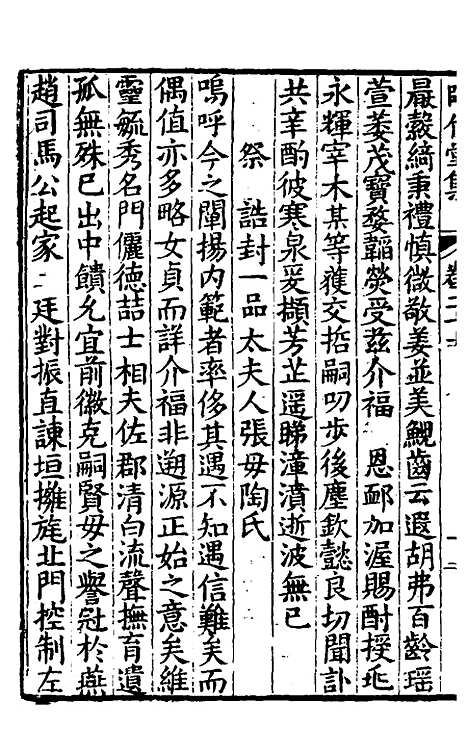 嚴縠綺秉禮慎徽敬姜並美鯢齒云遐胡弗百齡瑶
萱萎茂寶婺韜熒受茲介福　恩䘏加渥賜酹授兆
永輝宰木某等獲交哲嗣叨步後塵欽懿良切聞訃
共辛酌彼寒泉爰擷芳芷遥睇潼濆逝波無已
祭　誥封一品太夫人張母陶氏
嗚呼今之闡揚内範者率侈其遇不知遇信難矣而
偶值亦多略女貞而詳介福非遡源正始之意矣維
靈毓秀名門儷德喆士相夫佐郡清白流聲撫育遺
孤無殊已出中饋允宜前徽克嗣賢母之譽冠於燕
趙司馬公起家　廷對振直諫垣擁旄北門控制左